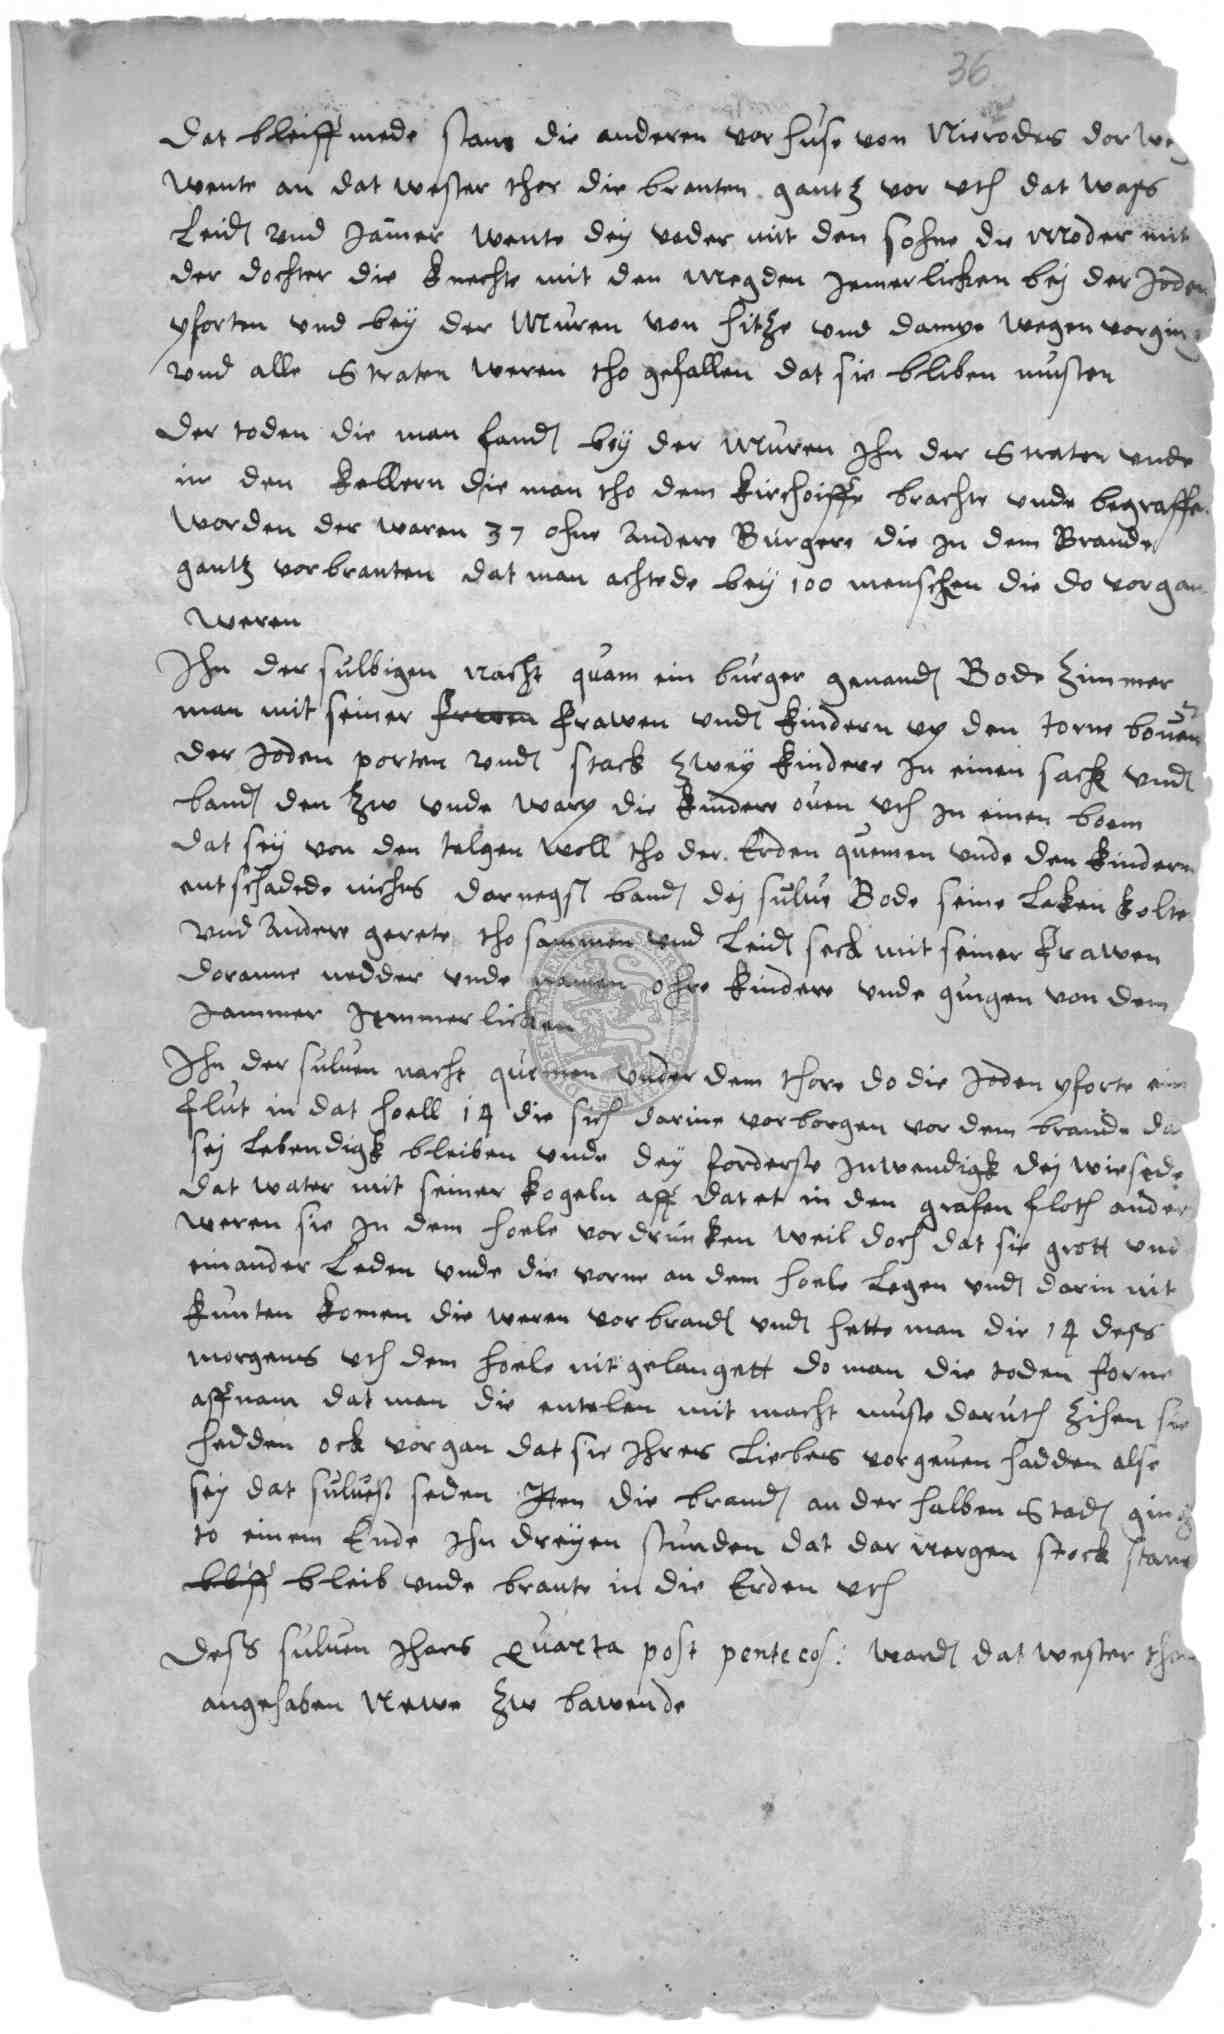 36
dat bleiff mede stan die anderen vor huse von Nierodes dor we
wente an dat wester thor die branten gantz vor vth dat wass
Leidt vnd Jamer wente dej vader mit den sohne die Moder mit
der dochter die knechte mit den Megden Jemerlicken bej der Joden
pforten vnd beÿ der Muren von hitze vnd dampe wegen vorging
vnd alle Straten weren tho gefallen dat sie bliben musten
der toden die man fandt beÿ der Muren Ihn der Straten vnde
in den kellern die man tho dem kirchoiffe brachte vnde begraffe
worden der waren 37 ohne andere Burgere die in dem Brande
gantz vorbranten dat man achtede beÿ 100 menschen die do vorgan
weren
Ihn der sulbigen nacht quam ein burger genandt Bode Zimmer
man mit seiner frwen frawen vndt kindern vp den torne bouen
der Joden porten vndt stack zweÿ kindere In einen sack vndt
bandt den zw vnde warp die kindere ouen vth In einen boem
dat seÿ von den telgen woll tho der Erden quemen vnde den kindern
entschadede nichts darnegst bandt dej sulue Bode seine Laken kolte
vnd andere gerete tho sammen vnd Leidt seck mit seiner frawen
doranne nedder vnde namen ohre kindere vnde gingen von dem
Jammer Jemmerlicken
Ihn der suluen nacht quemen vnder dem thore do die Joden pforte ein
flut in dat hoell 14 die sich darine vorborgen vor dem brande da
sej Lebendigk bleiben vnde deÿ forderste Inwendigk dej wiesede
dat water mit seiner kogeln aff dat et in den grafen floth ander
weren sie In dem hoele vordruncken weil doch dat sie grott vnd
einander Leden vnde die vorne an dem hoele Legen vndt darin nit
kunten komen die weren vorbrandt vndt hette man die 14 dess
morgens vth dem hoele nit gelangett do man die toden forne
affnam dat man die entelen mit macht muste daruth zihen sie
hedden ock vorgan dat sie Ihres Liebes vorgeuen hadden alse
seÿ dat suluest seden Iten die brandt an der halben Stadt ging
to einem Ende Ihn dreÿen stunden dat dar nergen stock stane
bliff bleib vnde brante in die Erden vth
dess suluen Jhars Quarta post pentecos: wardt dat wester thor
angehaben Newe zw bawende